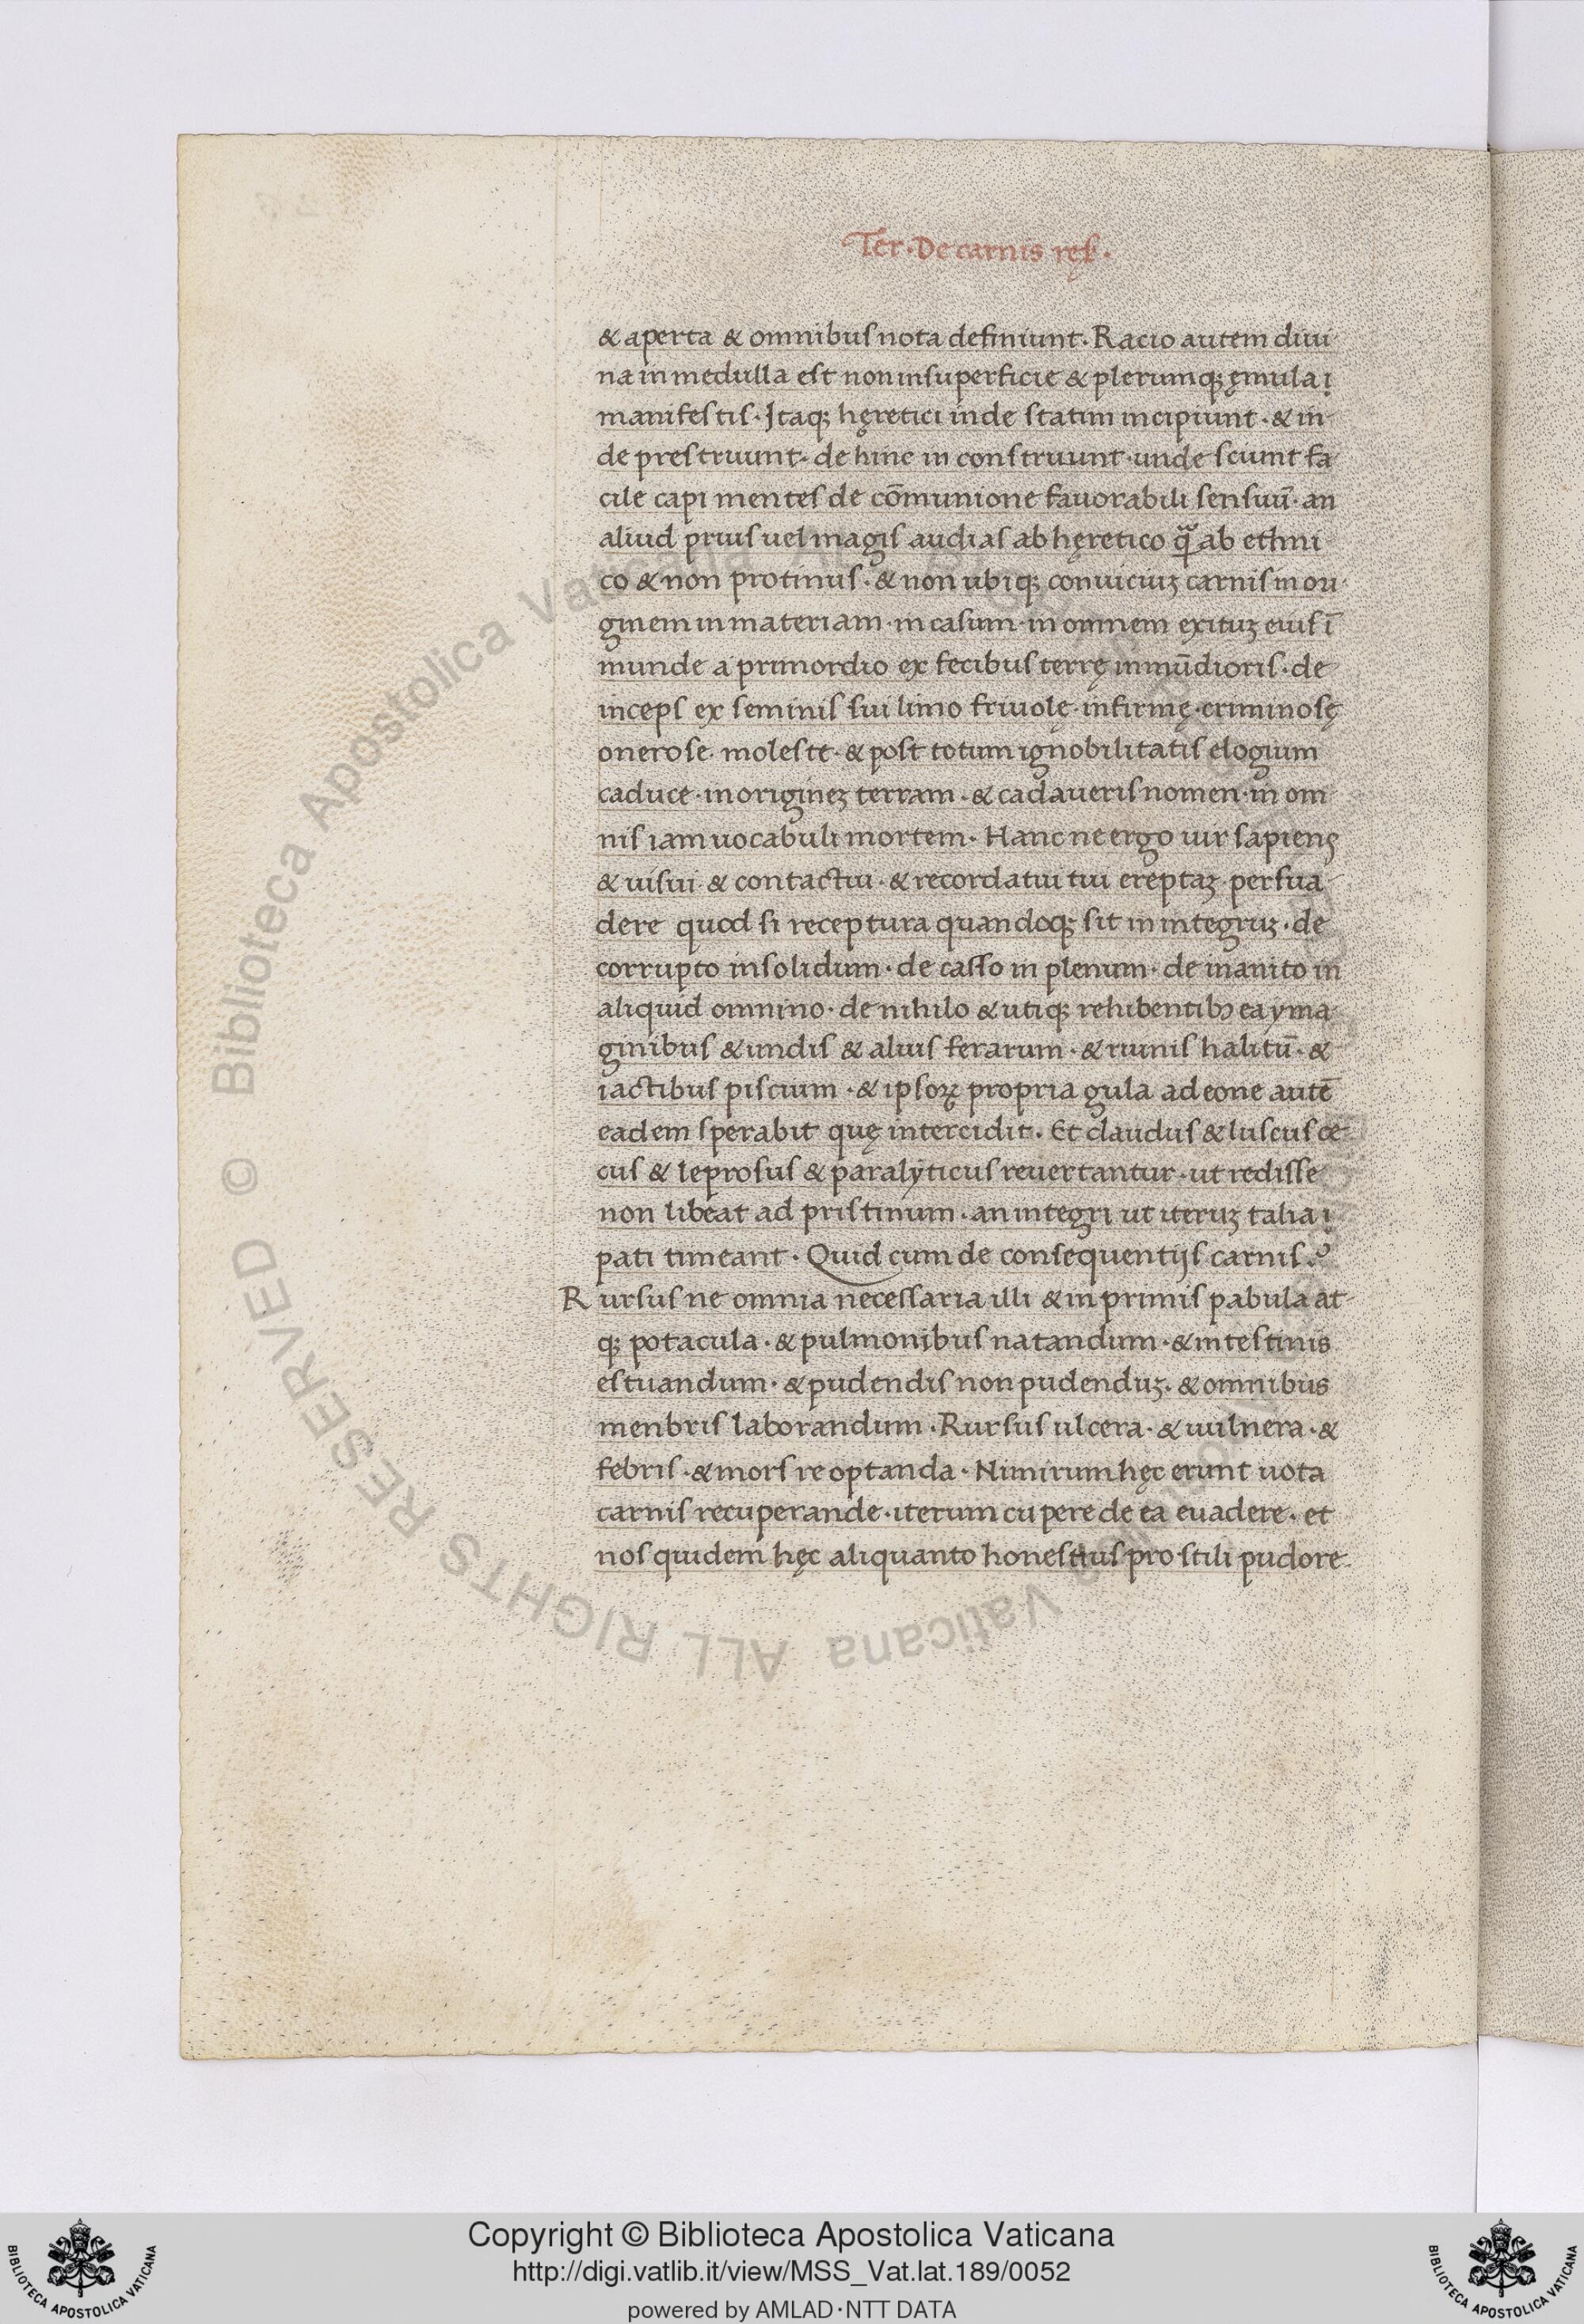 Ter · De carnis reꝭ.
& aperta & omnibus nota definiunt. Racio autem diui
na in medulla est non in superficie & plerumqꝫ ęmula ị
manifestis. Itaqꝫ hęretici inde statim incipiunt · & in
de prestruunt · de hinc in construunt · unde sciunt fa
cile capi mentes de cōmunione fauorabili sensuū · an
aliud prius uel magis audias ab hęretico qͣ̃ ab ethni
co & non protinus · & non ubiqꝫ conuiciuꝫ carnis in ori
ginem in materiam · in casum · in omnem exituꝫ eius ī
munde a primordio ex fecibus terrę inmūdioris · de
inceps ex seminis sui limo friuolę · infirmę · criminosę
onerose · moleste · & post totum ignobilitatis elogium
caduce · in origineꝫ terram · & cadaueris nomen · in om
nis iam uocabuli mortem. Hanc ne ergo uir sapiens
& uisui & contactui · & recordatui tui ereptaꝫ persua
dere quod si receptura quandoqꝫ sit in integruꝫ · de
corrupto in solidum · de casso in plenum · de inanito in
aliquid omnino · de nihilo & utiqꝫ rehibentibꝫ ea yma
ginibus & undis & aluis ferarum · & riunis halitū · &
iactibus piscium · & ipsoꝝ propria gula adeone autē
eadem sperabit quę intercidit. Et claudus & luscus ce
cus & leprosus & paralyticus reuertantur · ut redisse
non libeat ad pristinum · an integri ut iteruꝫ talia ị
pati timeant. Quid cum de consequentijs carnis?
Rursus ne omnia necessaria illi & in primis pabula at
qꝫ potacula · & pulmonibus natandum · & intestinis
estuandum · & pudendis non pudenduꝫ · & omnibus
menbris laborandum. Rursus ulcera · & uulnera · &
febris · & mors reoptanda. Nimirum hęc erunt uota
carnis recuperande · iterum cupere de ea euadere · et
nos quidem hęc aliquanto honestius pro stili pudore
Copyright © Biblioteca Apostolica Vaticana
http://digi.vatlib.it/view/MSS_Vat.lat.189/0052
powered by AMLAD·NTT DATA